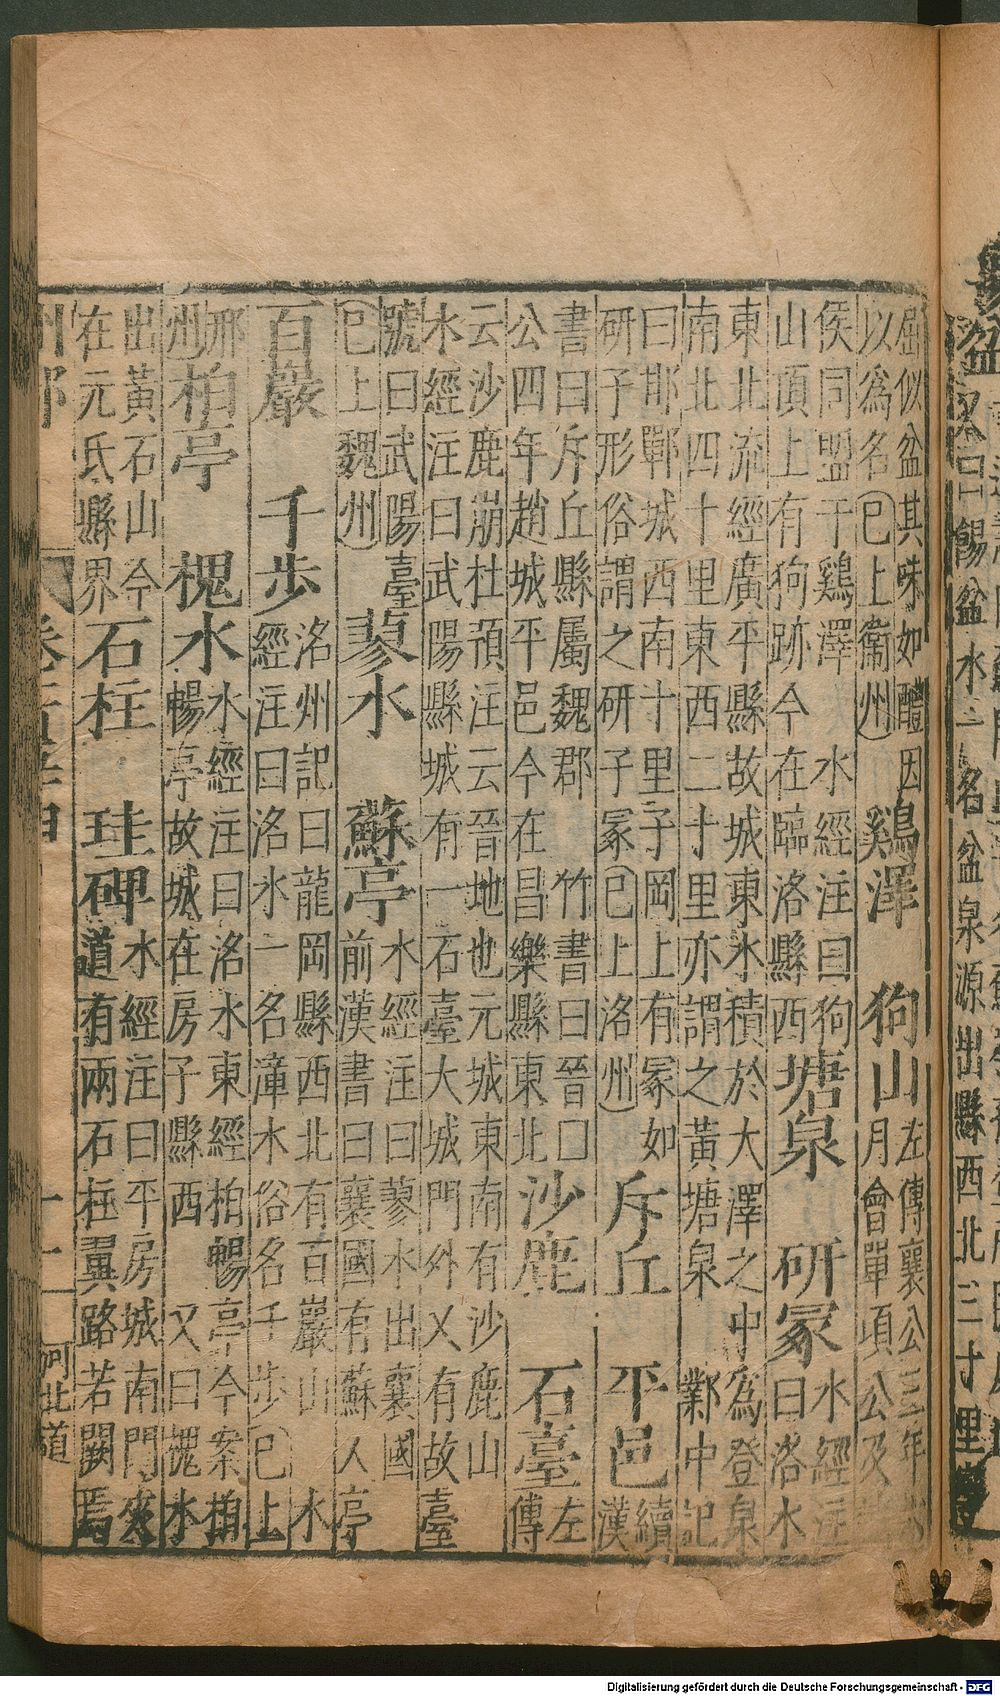 盆水一名盆泉源出縣西北三十里
屈似盆其味如醴因
以為名已上衞州
鷄澤 狗山
左傳襄公三年
月會單項公及
侯同盟于鷄澤 水經注曰狗
山頂上有狗跡今在臨洛縣西
塘泉 研冢
水經注
曰洛水
東北流經廣平縣故城東水積於大澤之中為登泉
南北四十里東西二十里亦謂之黃塘泉 鄴中記
曰邯鄲城西南十里子岡上有冢如
研子形俗謂之研子冢已上洛州
斥丘 平邑
續
漢
書曰斥丘縣屬魏郡 竹書曰晉囗
公四年趙城平邑今在昌樂縣東北
沙鹿 石臺
左
傳
云沙鹿崩杜預注云晉地也元城東南有沙鹿山
水經注曰武陽縣城有一石臺大城門外又有故臺
號曰武陽臺
已上魏州
蓼水 蘇亭
水經注曰蓼水出襄國
前漢書曰襄國有蘇人亭
百巖 千步
洛州記曰龍岡縣西北有百巖山 水
經注曰洛水一名漳水俗名千步已上
邢
州
柏亭 槐水
水經注曰洛水東經柏暢亭今案柏
暢亭故城在房子縣西 又曰槐水
出黃石山今
在元氏縣界
石柱 珪碑
水經注曰平房城南門夾
道有兩石柱翼路若闕焉
河北道
Digitalisierung gefördert durch die Deutsche Forschungsgemeinschaft - DFG